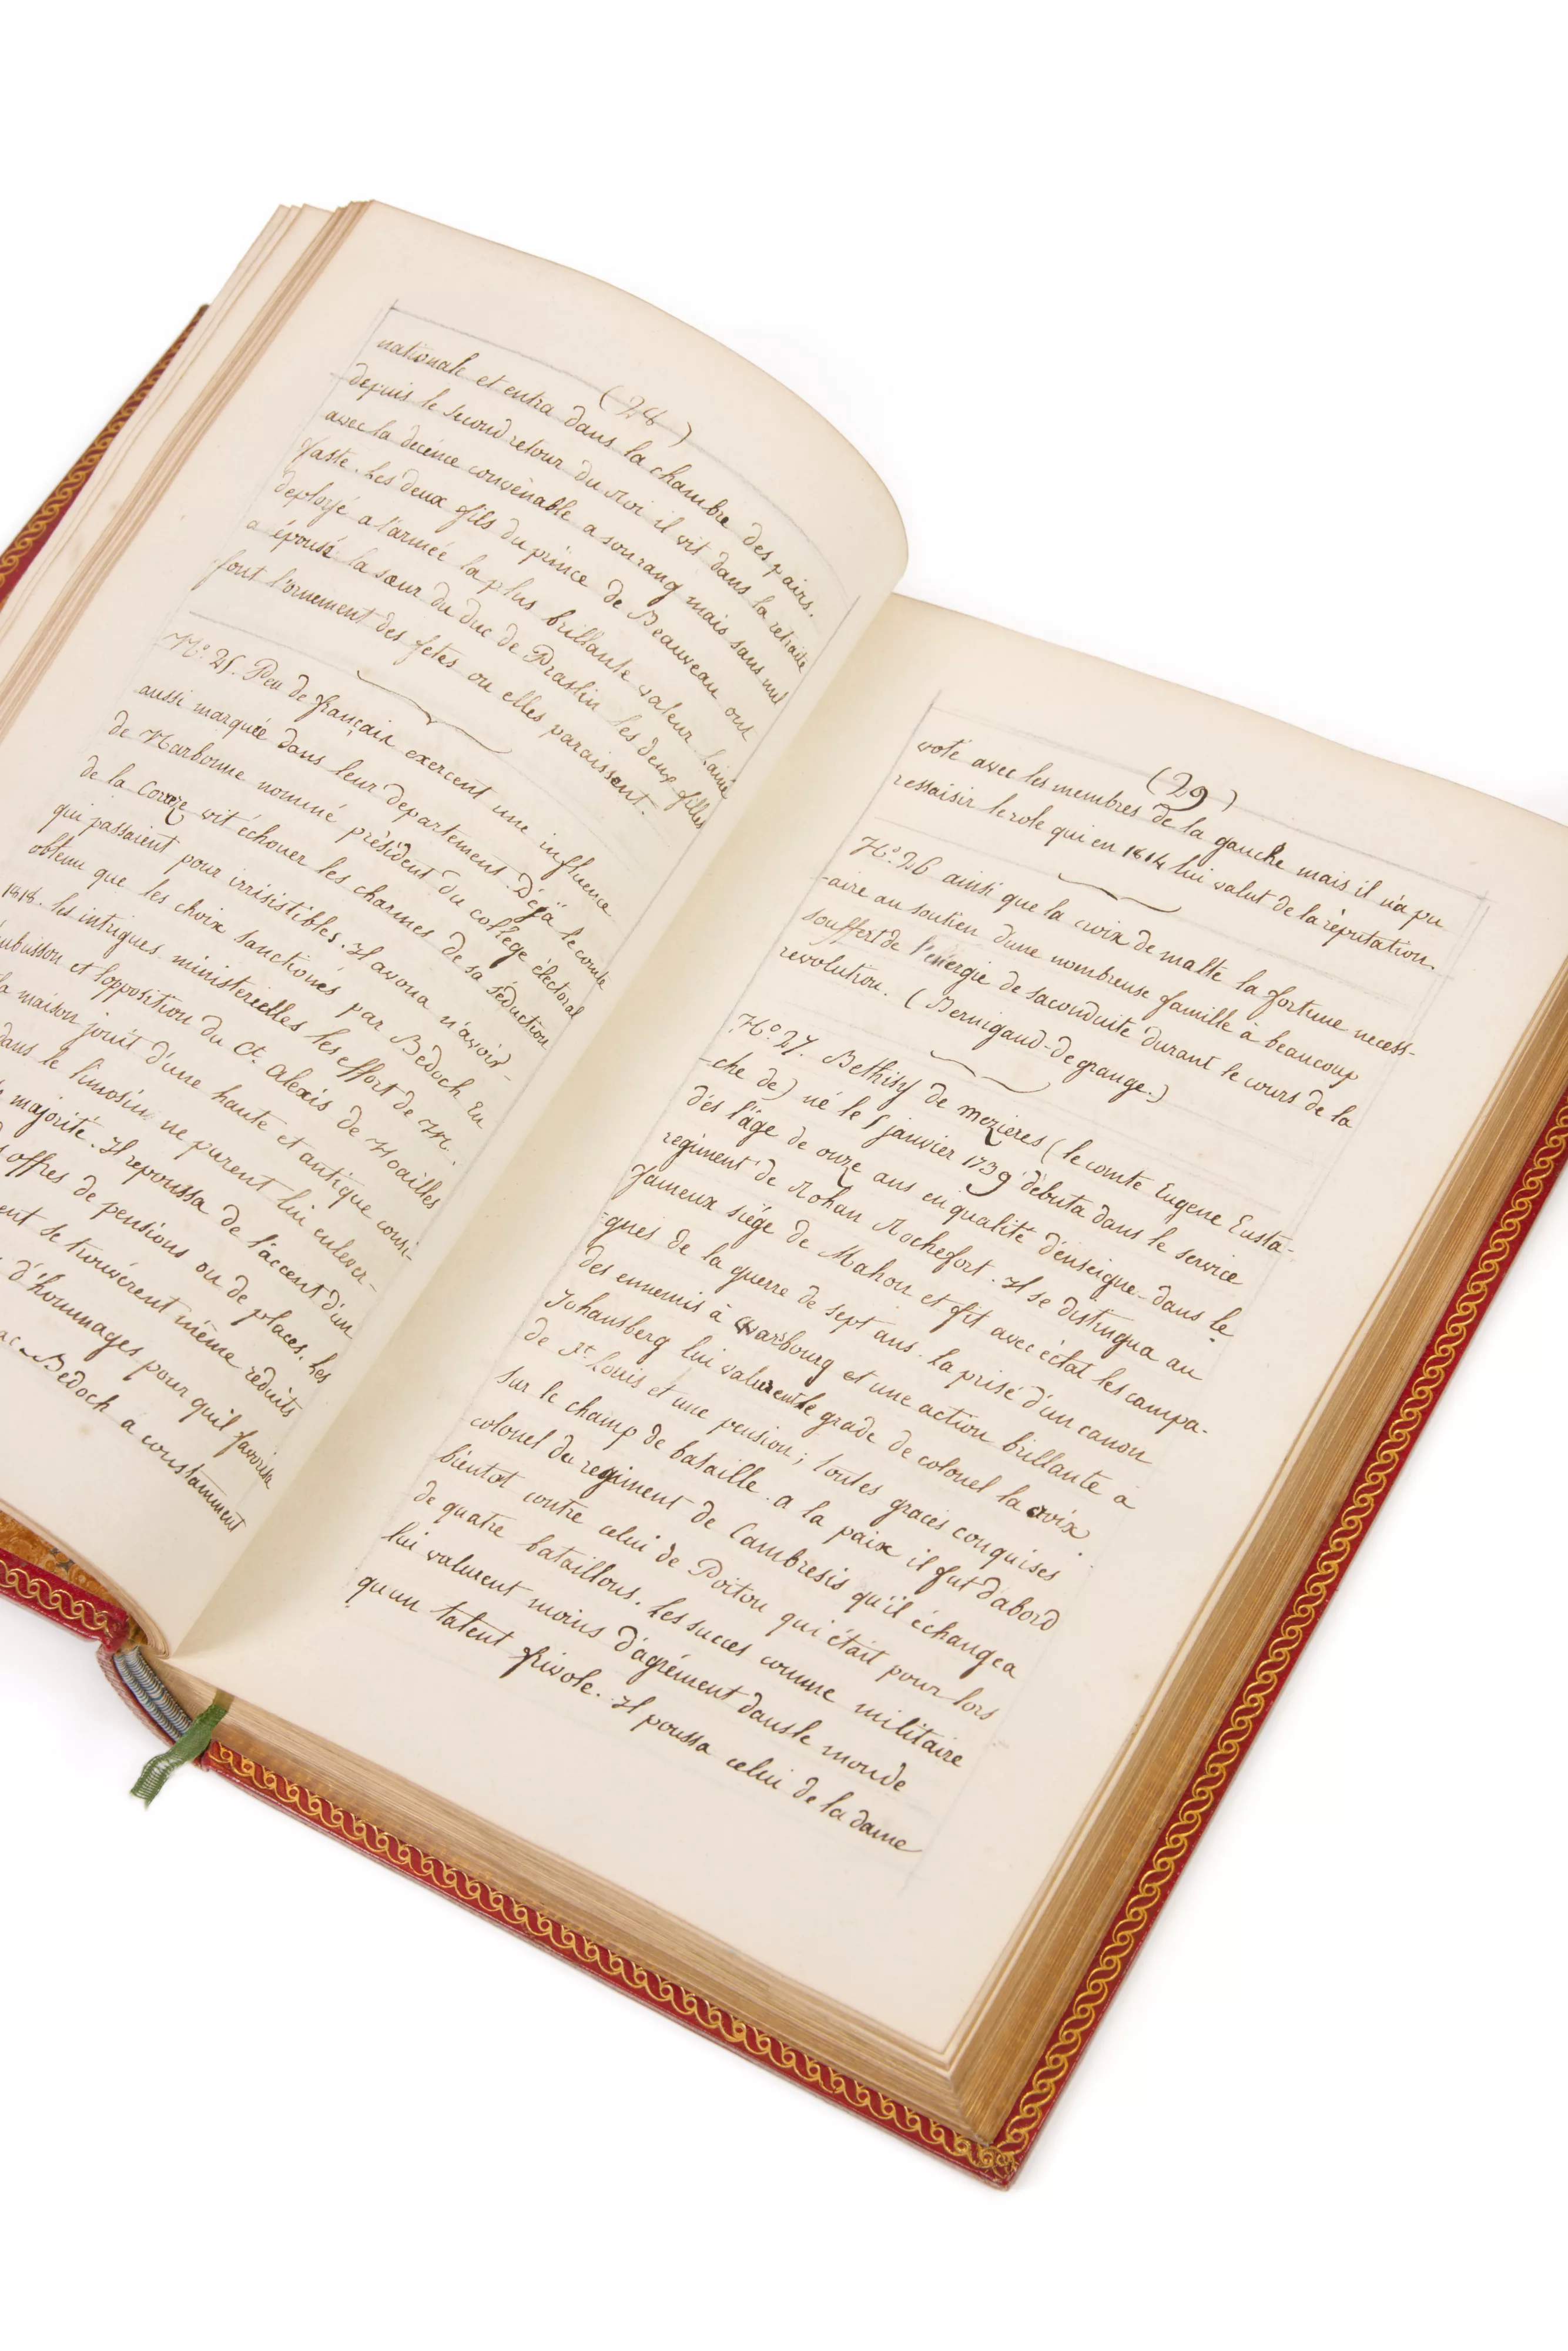 (28)
nationale et entra dans la chambre des pairs.
depuis le second retour du Roi il vit dans la retraite
avec la décence convenable a son rang mais sans nul
faste. Les deux fils du prince de Beauveau ont
deployé a l'armée la plus brillante valeur. L'ainé
a épousé la sœur du duc de Praslin les deux filles
font l'ornement des fetes ou elles paraissent.
N.º 25. Peu de français exercent une influence
aussi marquée dans leur departement. Déjà le comte
de Narbonne nommé président du collège électoral
de la Corrèze vit échouer les charmes de sa séduction
qui passaient pour irrisistibles. Il avoua n'avoir
obtenu que les choix sanctionés par Bedoch En
1818. les intrigues ministerielles les effort de M.
ubuisson et l'opposition du Ct. Alexis de Noailles
la maison jouit d'une haute et antique consi-
dans le limosin ne purent lui enlever-
majorité. Il repoussa de l'accent d'un
offres de pensions ou de places. les
ent se trouvérent même réduits
d'hommages pour quil favorisa
Bedoch a constamment
(29)
voté avec les membres de la gauche mais il n'a pu
ressaisir le role qui en 1814 lui valut de la réputation.
N.º 26 ainsi que la croix de malte la fortune necess-
-aire au soutien d'une nombreuse famille à beaucoup
souffert de l'énergie de sa conduite durant le cours de la
revolution. (Bernigaud-de grange.)
N.º 27. Bethisy de mezieres (le comte Eugene Eusta-
-che de) né le 5 janvier 1739 débuta dans le service
dés l'âge de onze ans en qualité d'enseigne dans le
regiment de Rohan Rochefort. Il se distingua au
fameux siége de Mahon et fit avec éclat les campa-
=gnes de la guerre de sept ans. la prisé d'un canon
des ennemis à Warbourg et une action brillante à
Johansberg lui valurent le grade de colonel la croix
de St. Louis et une pension; toutes graces conquises
sur le champ de bataille. a la paix il fut d'abord
colonel du regiment de Cambresis qu'il échangea
bientot contre celui de Poitou qui était pour lors
de quatre bataillons. les succes comme militaire
lui valurent moins d'agrément dans le monde
qu'un talent frivole. Il poussa celui de la danse